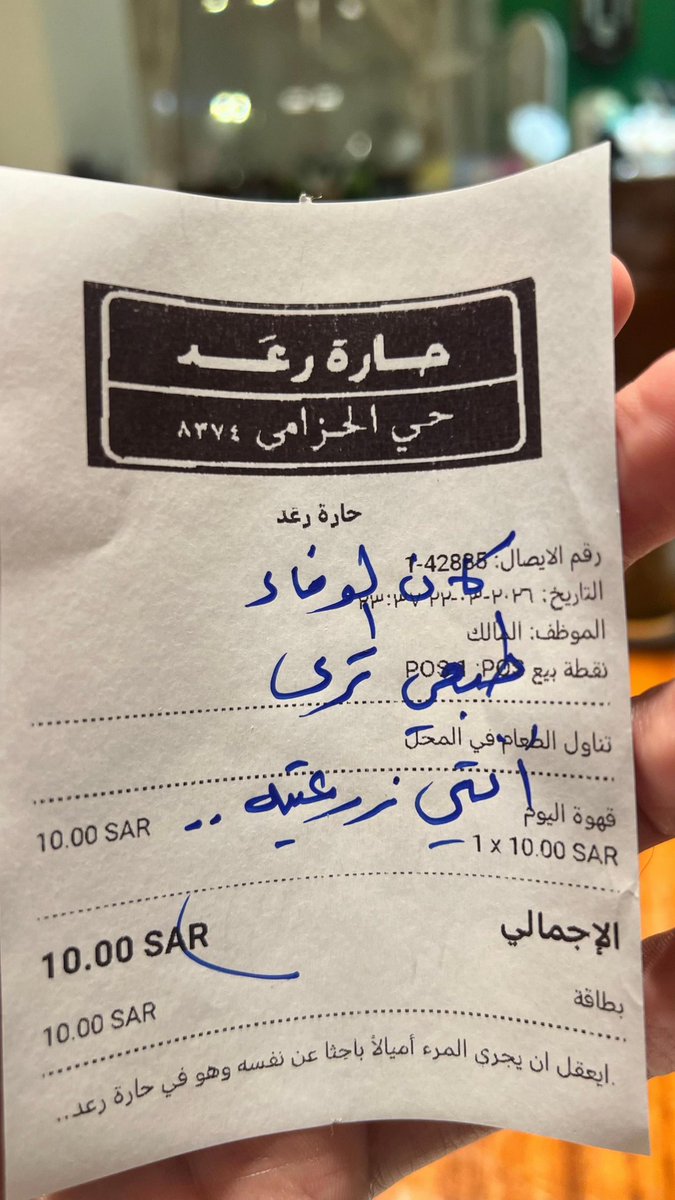 حارة رعَد
حي الحزامى ٨٣٧٤
حارة رعد
رقم الايصال: 1-42885
كان لوفاء
التاريخ: ٢٠٢٦-٠٣-٢٢ ٢٣:٣٧
الموظف: المالك
طبعي ترى
نقطة بيع POS: POS 1
تناول الطعام في المحل
انتي زرعتيه ..
قهوة اليوم 10.00 SAR
1 x 10.00 SAR
الإجمالي 10.00 SAR
بطاقة 10.00 SAR
.ايعقل ان يجري المرء أميالاً باحثا عن نفسه وهو في حارة رعد..